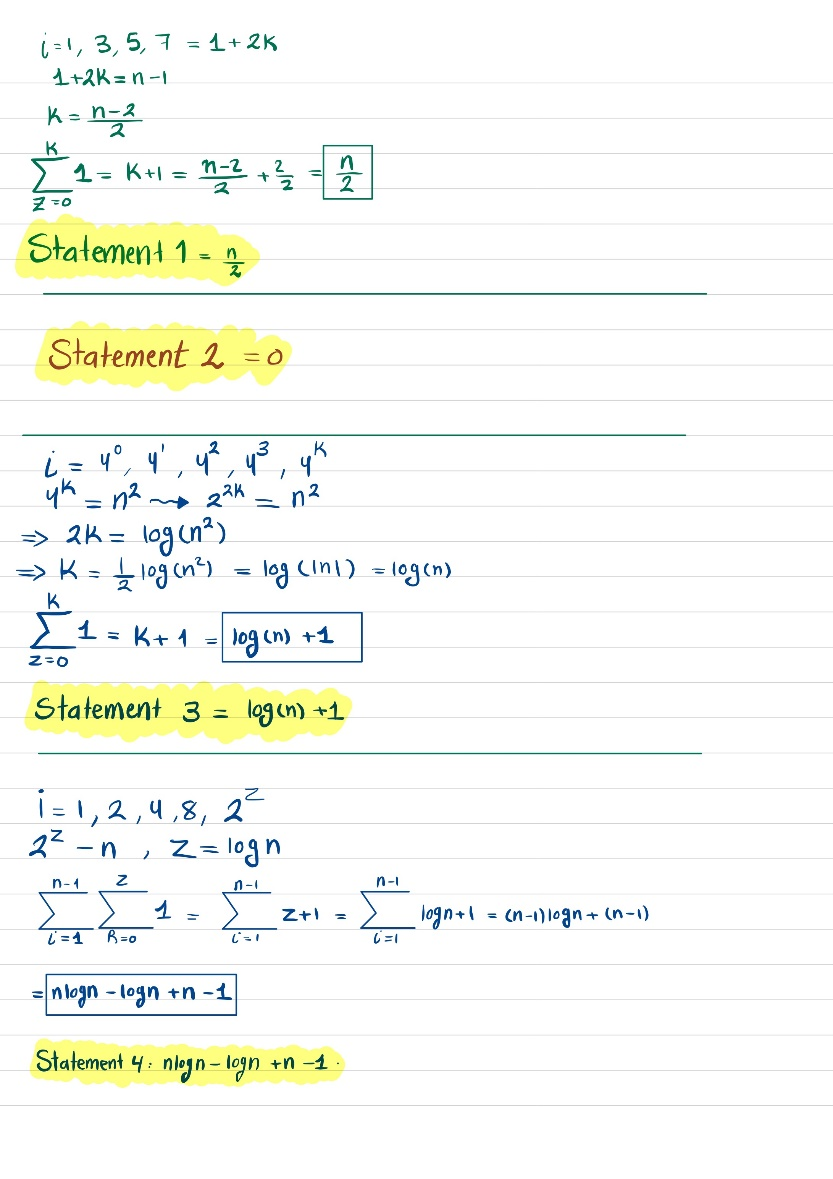 i=1, 3, 5, 7 = 1+2K
1+2K=n-1
K = n-2/2
K∑z=0 1 = K+1 = n-2/2 + 2/2 = n/2
Statement 1 = n/2
Statement 2 = 0
i = 4⁰, 4¹, 4², 4³, 4ᴷ
4ᴷ = n² ⇝ 2²ᴷ = n²
⇒ 2K = log(n²)
⇒ K = 1/2 log(n²) = log(|n|) = log(n)
K∑z=0 1 = K+1 = log(n) +1
Statement 3 = log(n) +1
i = 1, 2, 4, 8, 2ᶻ
2ᶻ - n , z = log n
n-1∑i=1 z∑R=0 1 = n-1∑i=1 z+1 = n-1∑i=1 logn+1 = (n-1)logn + (n-1)
= nlogn - logn + n - 1
Statement 4: nlogn - logn + n - 1.